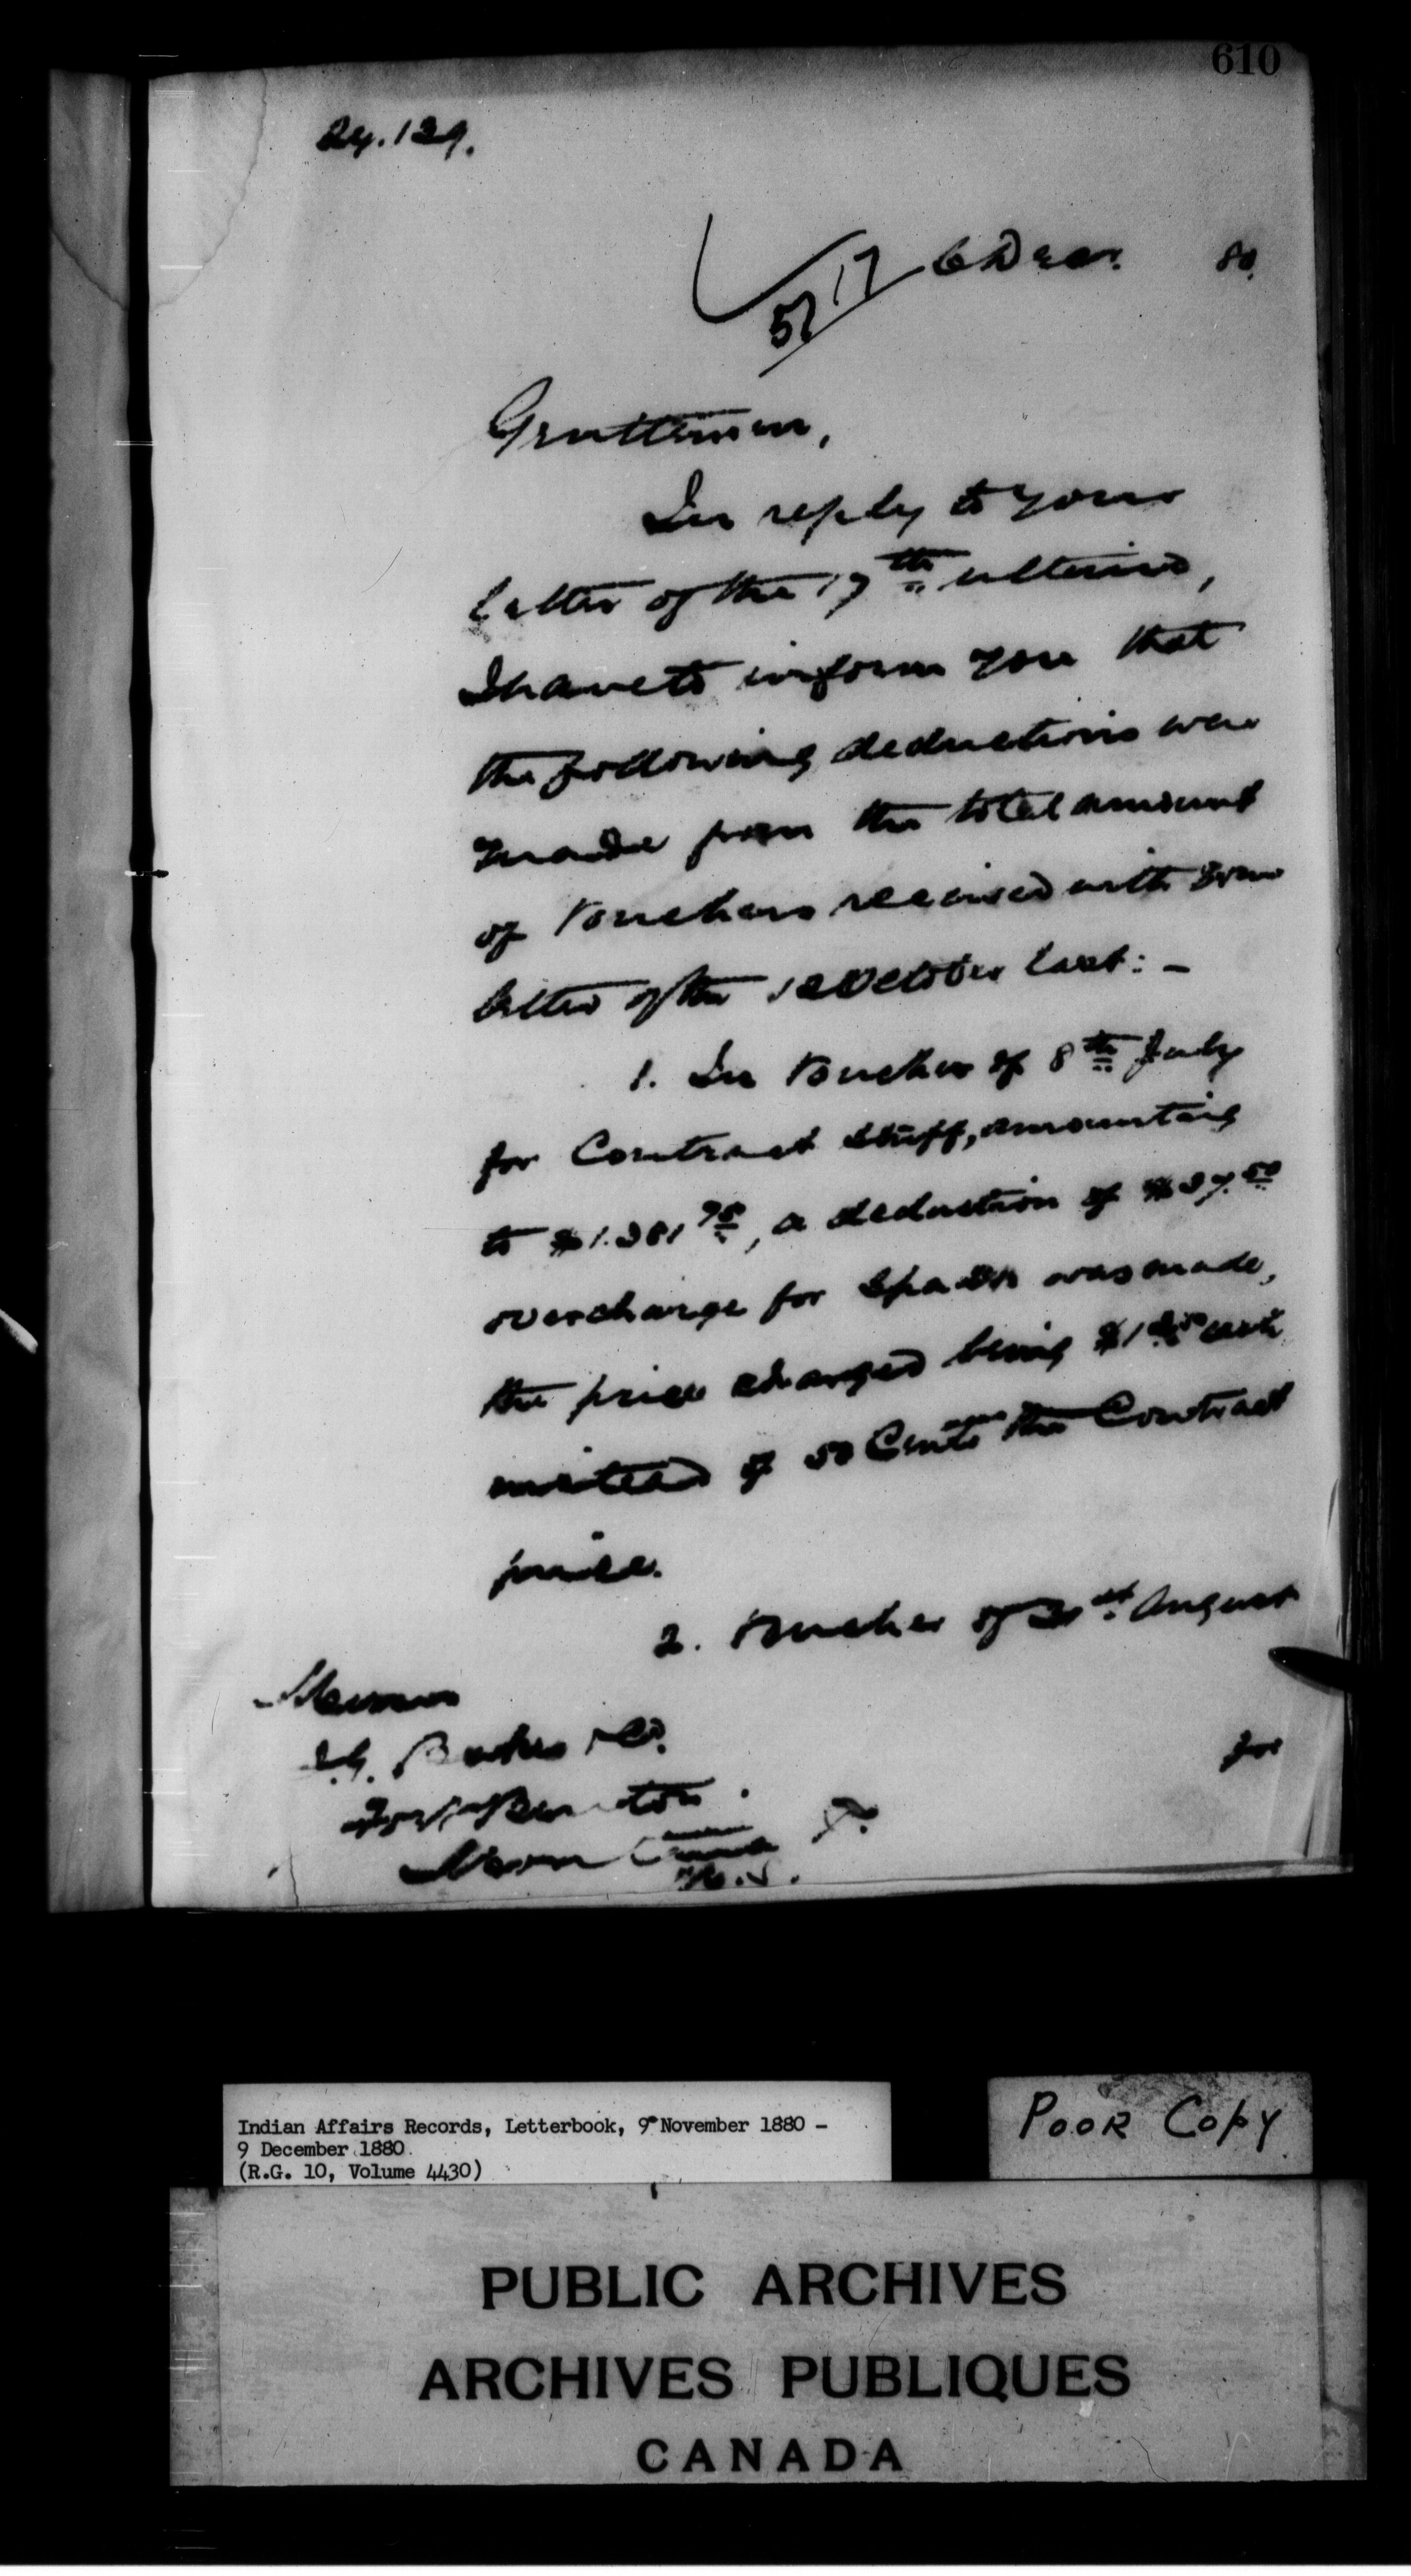 610
6 Decr. 80.
17
57
Gentlemen,
In reply to your
letter of the 17th ultimo,
I have to inform you that
the following deductions were
made from the total amount
of Vouchers received with your
letter of the 12 October last: -
1. In Voucher of 8th July
for Contract Stuff, amounting
to $1.381 75, a deduction of $37.50
overcharge for Spades was made,
the price charged being $1 each
instead of 50 Cents the Contract
price.
2. Voucher of 31st August
for
Messrs
I.G. Baker & Co.
Fort Benton.
Indian Affairs Records, Letterbook, 9 November 1880 -
9 December 1880.
(R.G. 10, Volume 4430)
POOR COPY
PUBLIC ARCHIVES
ARCHIVES PUBLIQUES
CANADA